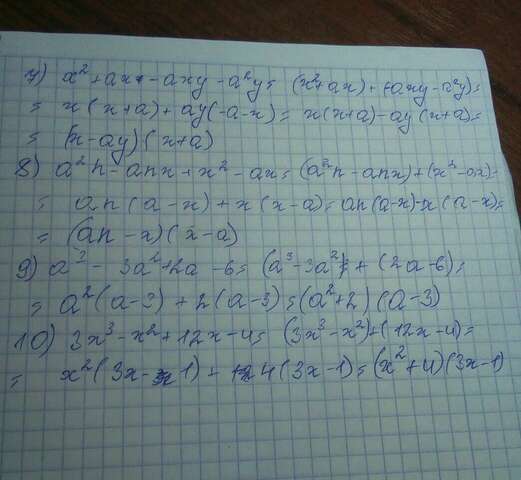 7) x² + ax - axy - a²y = (x² + ax) + (-axy - a²y) =
= x(x+a) + ay(-a-x) = x(x+a) - ay(x+a) =
= (x-ay)(x+a)
8) a²n - anx + x² - ax = (a²n - anx) + (x² - ax) =
= an(a-x) + x(x-a) = an(a-x) - x(a-x) =
= (an-x)(x-a)
9) a³ - 3a² + 2a - 6 = (a³ - 3a²) + (2a - 6) =
= a²(a-3) + 2(a-3) = (a²+2)(a-3)
10) 3x³ - x² + 12x - 4 = (3x³ - x²) + (12x - 4) =
= x²(3x - 1) + 4(3x-1) = (x²+4)(3x-1)